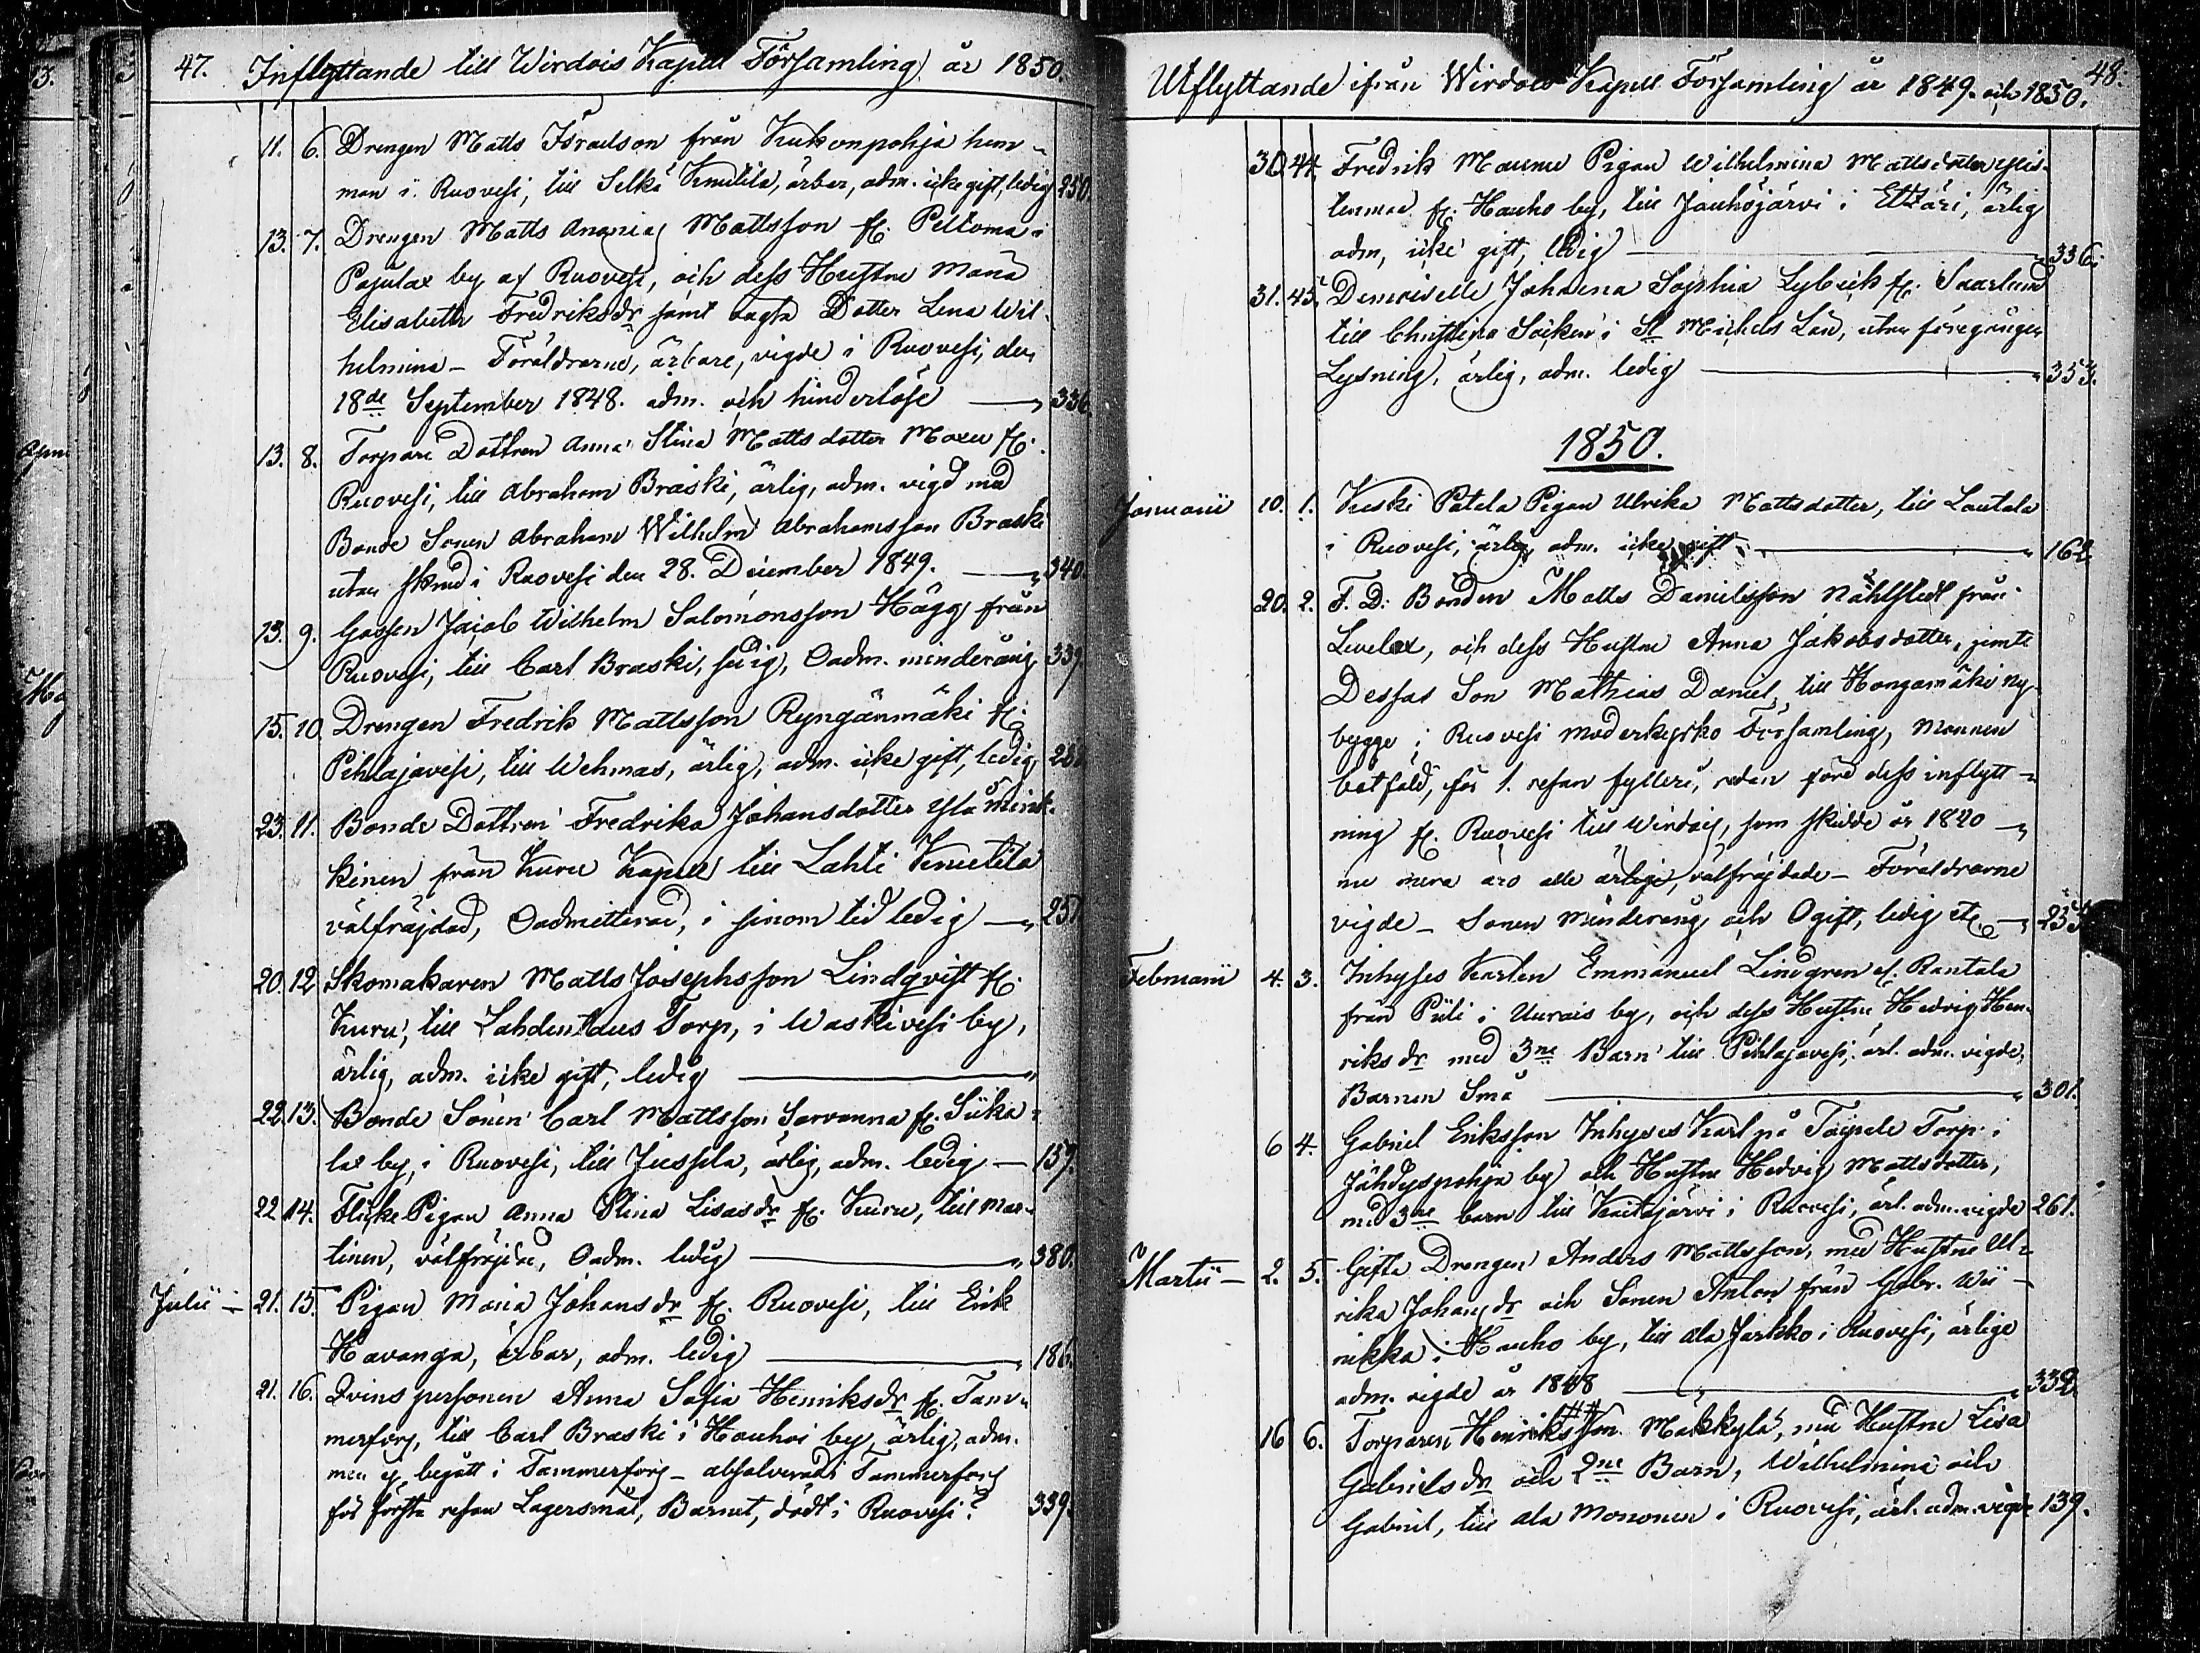 47. Inflyttande till Wirdois Kapell Församling år 1850.
11. 6. Drengen Matts Israelson från Kukonpohja hem-
man i Ruovesi, till Selkä Knutila, ärbar, adm. icke gift, ledig 250.
13. 7. Drengen Matts Ananias Mattsson fr. Peltoma i
Pajulax by af Ruovesi, och dess Hustru Maria
Elisabeth Fredriksdr samt ägta Dotter Lena Wil-
helmina - Föräldrarne, ärbare, vigde i Ruovesi, den
18de September 1848. adm. och hinderlöse 336.
13. 8. Torpare Dottren Anna Stina Matts dotter fr.
Ruovesi, till Abraham Braski, ärlig, adm. vigd med
Bonde Sonen Abraham Wilhelm Abrahamsson Braski
utan skrud i Ruovesi den 28. December 1849. 340.
13. 9. Gossen Jacob Wilhelm Salomonsson Hägg från
Ruovesi, till Carl Braski, sedig, Oadm. minderårig 339.
15. 10. Drengen Fredrik Mattsson Ryngänmäki fr.
Pihlajavesi, till Wehmas, ärlig, adm. icke gift, ledig
23. 11. Bonde Dottren Fredrika Johansdotter Mink-
kinen från Kuru Kapell till Lahti Knutila
välfräjdad, Oadmitterad, i sinom tid ledig 251.
20. 12. Skomakaren Matts Josephsson Lindqvist fr.
Kuru, till Lahdentaus Torp, i Waskivesi by,
ärlig, adm. icke gift, ledig
22. 13. Bonde Sonen Carl Mattsson Sarvanna fr. Siika-
lax by, i Ruovesi, till Jussila, ärlig, adm. ledig 157.
22. 14. Flicke Pigan Anna Stina Lisasdr fr. Kuru, till Mar-
tinen, välfräjdad, Oadm. ledig 380.
Julii - 21. 15. Pigan Maria Johansdr fr. Ruovesi, till Erik
Havanga, ärbar, adm. ledig 186.
21. 16. Qvins personen Anna Sofia Henriksdr fr. Tam-
merfors, till Carl Braski i Hauhoi by, ärlig, adm.
men ej begått i Tammerfors - absolverad i Tammerfors
för första resan Lägersmål, Barnet, dödt i Ruovesi? 339.
Utflyttande ifrån Wirdois Kapell Församling år 1849. och 1850. 48.
30. 44. Fredrik Maunu Pigan Wilhelmina Mattsdotter Ylis-
tenmäe fr. Hauho by, till Jauhojärvi i Etsäri, ärlig
adm, icke gift, ledig 336.
31. 45. Demoiselle Johanna Sophia Lybeck fr. Saarlund
till Christina Socken i St Michels Län, utan föregången
Lysning, ärlig, adm. ledig 353.
1850.
Januarii 10. 1. Keski Patala Pigan Ulrika Mattsdotter, till Lautala
i Ruovesi, ärlig, adm. icke gift 162
20. 2. F. D. Bonden Matts Danielsson Nåhlstedt från
Lewelax, och dess Hustru Anna Jakobsdotter, jemte
Dessas Son Mathias Daniel, till Hongamäki ny-
bygge i Ruovesi moderkyrko Församling, Mannen
botfäld, för 1. resan fylleri, redan före dess inflytt-
ning fr. Ruovesi till Wirdois, som skedde år 1820
nu mera äro alle ärlige, välfräjdade - Föräldrarne
vigde - Sonen Minderårig och Ogift, ledig etc.
Februarii 4. 3. Inhyses Karlen Emmanuel Lindgren el. Rantala
från Puli i Uurais by, och dess Hustru Hedvig Hen-
riksdr med 3ne Barn till Pihlajavesi, ärl. adm. vigde,
Barnen Små 301.
6 4. Gabriel Eriksson Inhyses Karl på Torp i
Jähdyspohja by och Hustru Hedvig Mattsdotter,
med 3ne barn till Kaitajärvi i Ruovesi, ärl. adm. vigde 261.
Martii - 2. 5. Gifta Drengen Anders Mattsson, med Hustru Ul-
rika Johansdr och Sonen Anton från Gabr. Wii-
nikka i Hauho by, till Ala Jarkko i Ruovesi, ärlige
adm. vigde år 1848 332
16 6. Torparen Henriksson Mäkkylä, med Hustru Lisa
Gabrielsdr och 2ne Barn, Wilhelmina och
Gabriel, till Ala Mononen i Ruovesi, ärl. adm. vigde 139.